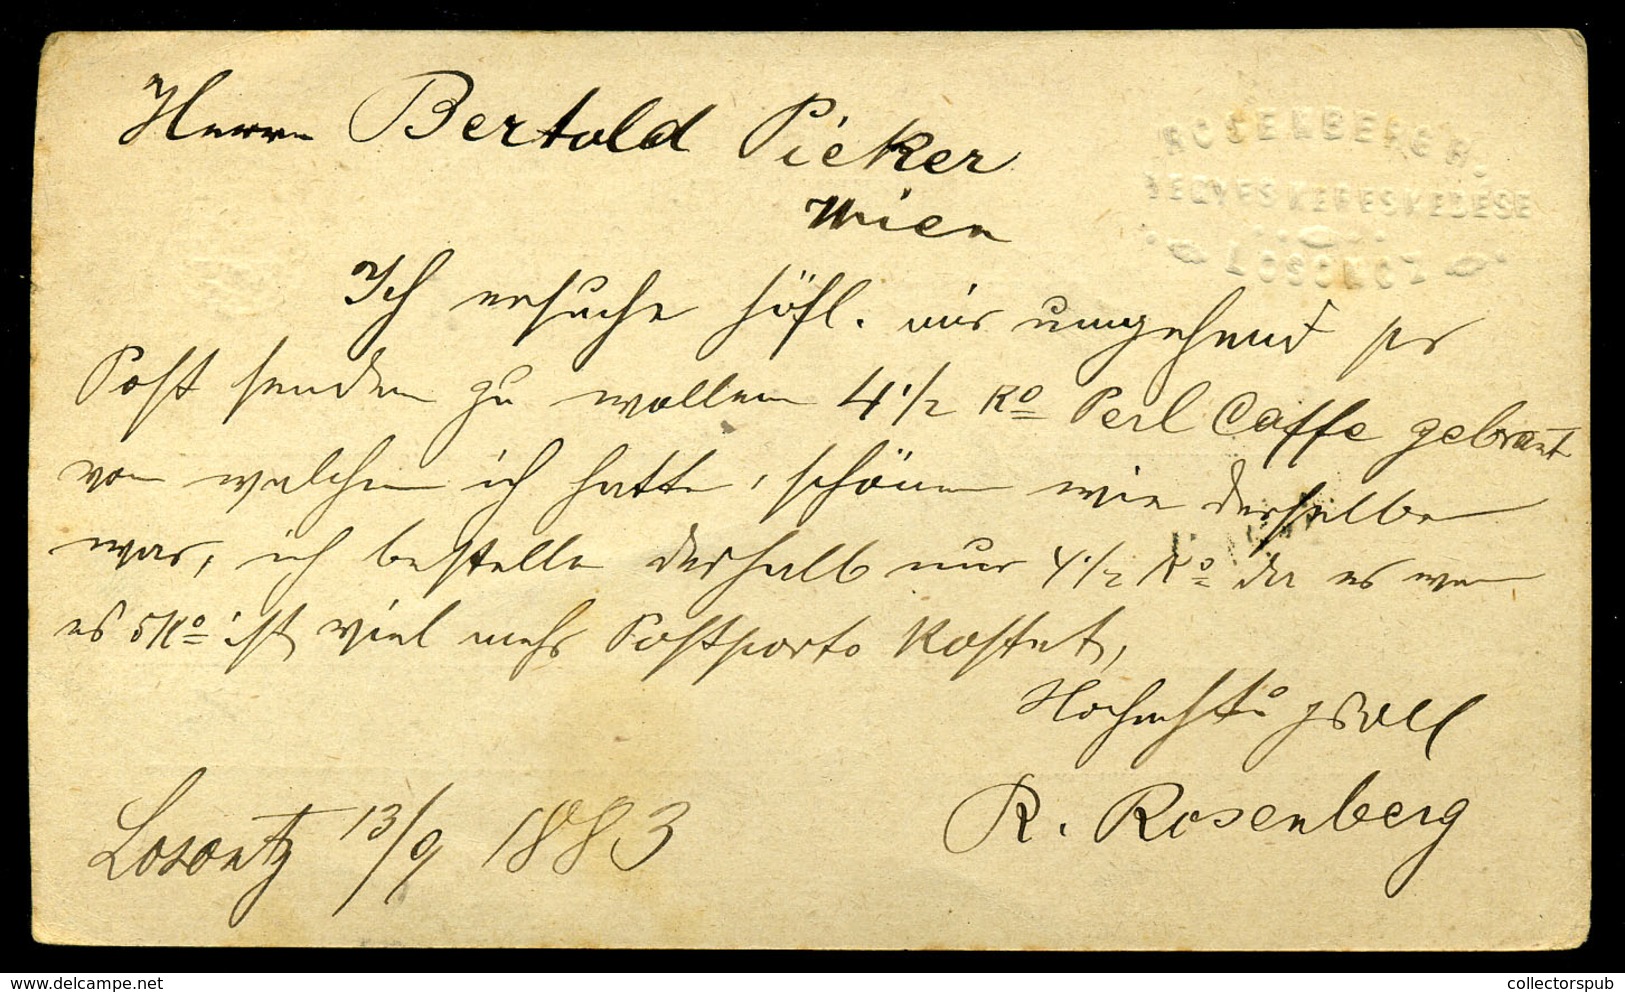 Herrn Bertold Picker
Wien
ROSENBERG R.
VEGYESKERESKEDÉSE
LOSONCZ
Ich ersuche höfl. mir umgehend per
Post senden zu wollen 4 1/2 Ko Perl Caffe gebrant
von welchen ich hatte, schönen wie derselbe
war, ich bestelle deshalb nur 4 1/2 Ko da es wen
es 5 Ko ist viel mehr Postporto kostet,
Hochachtungsvoll
R. Rosenberg
Losontz 13/9 1883
collectorspub